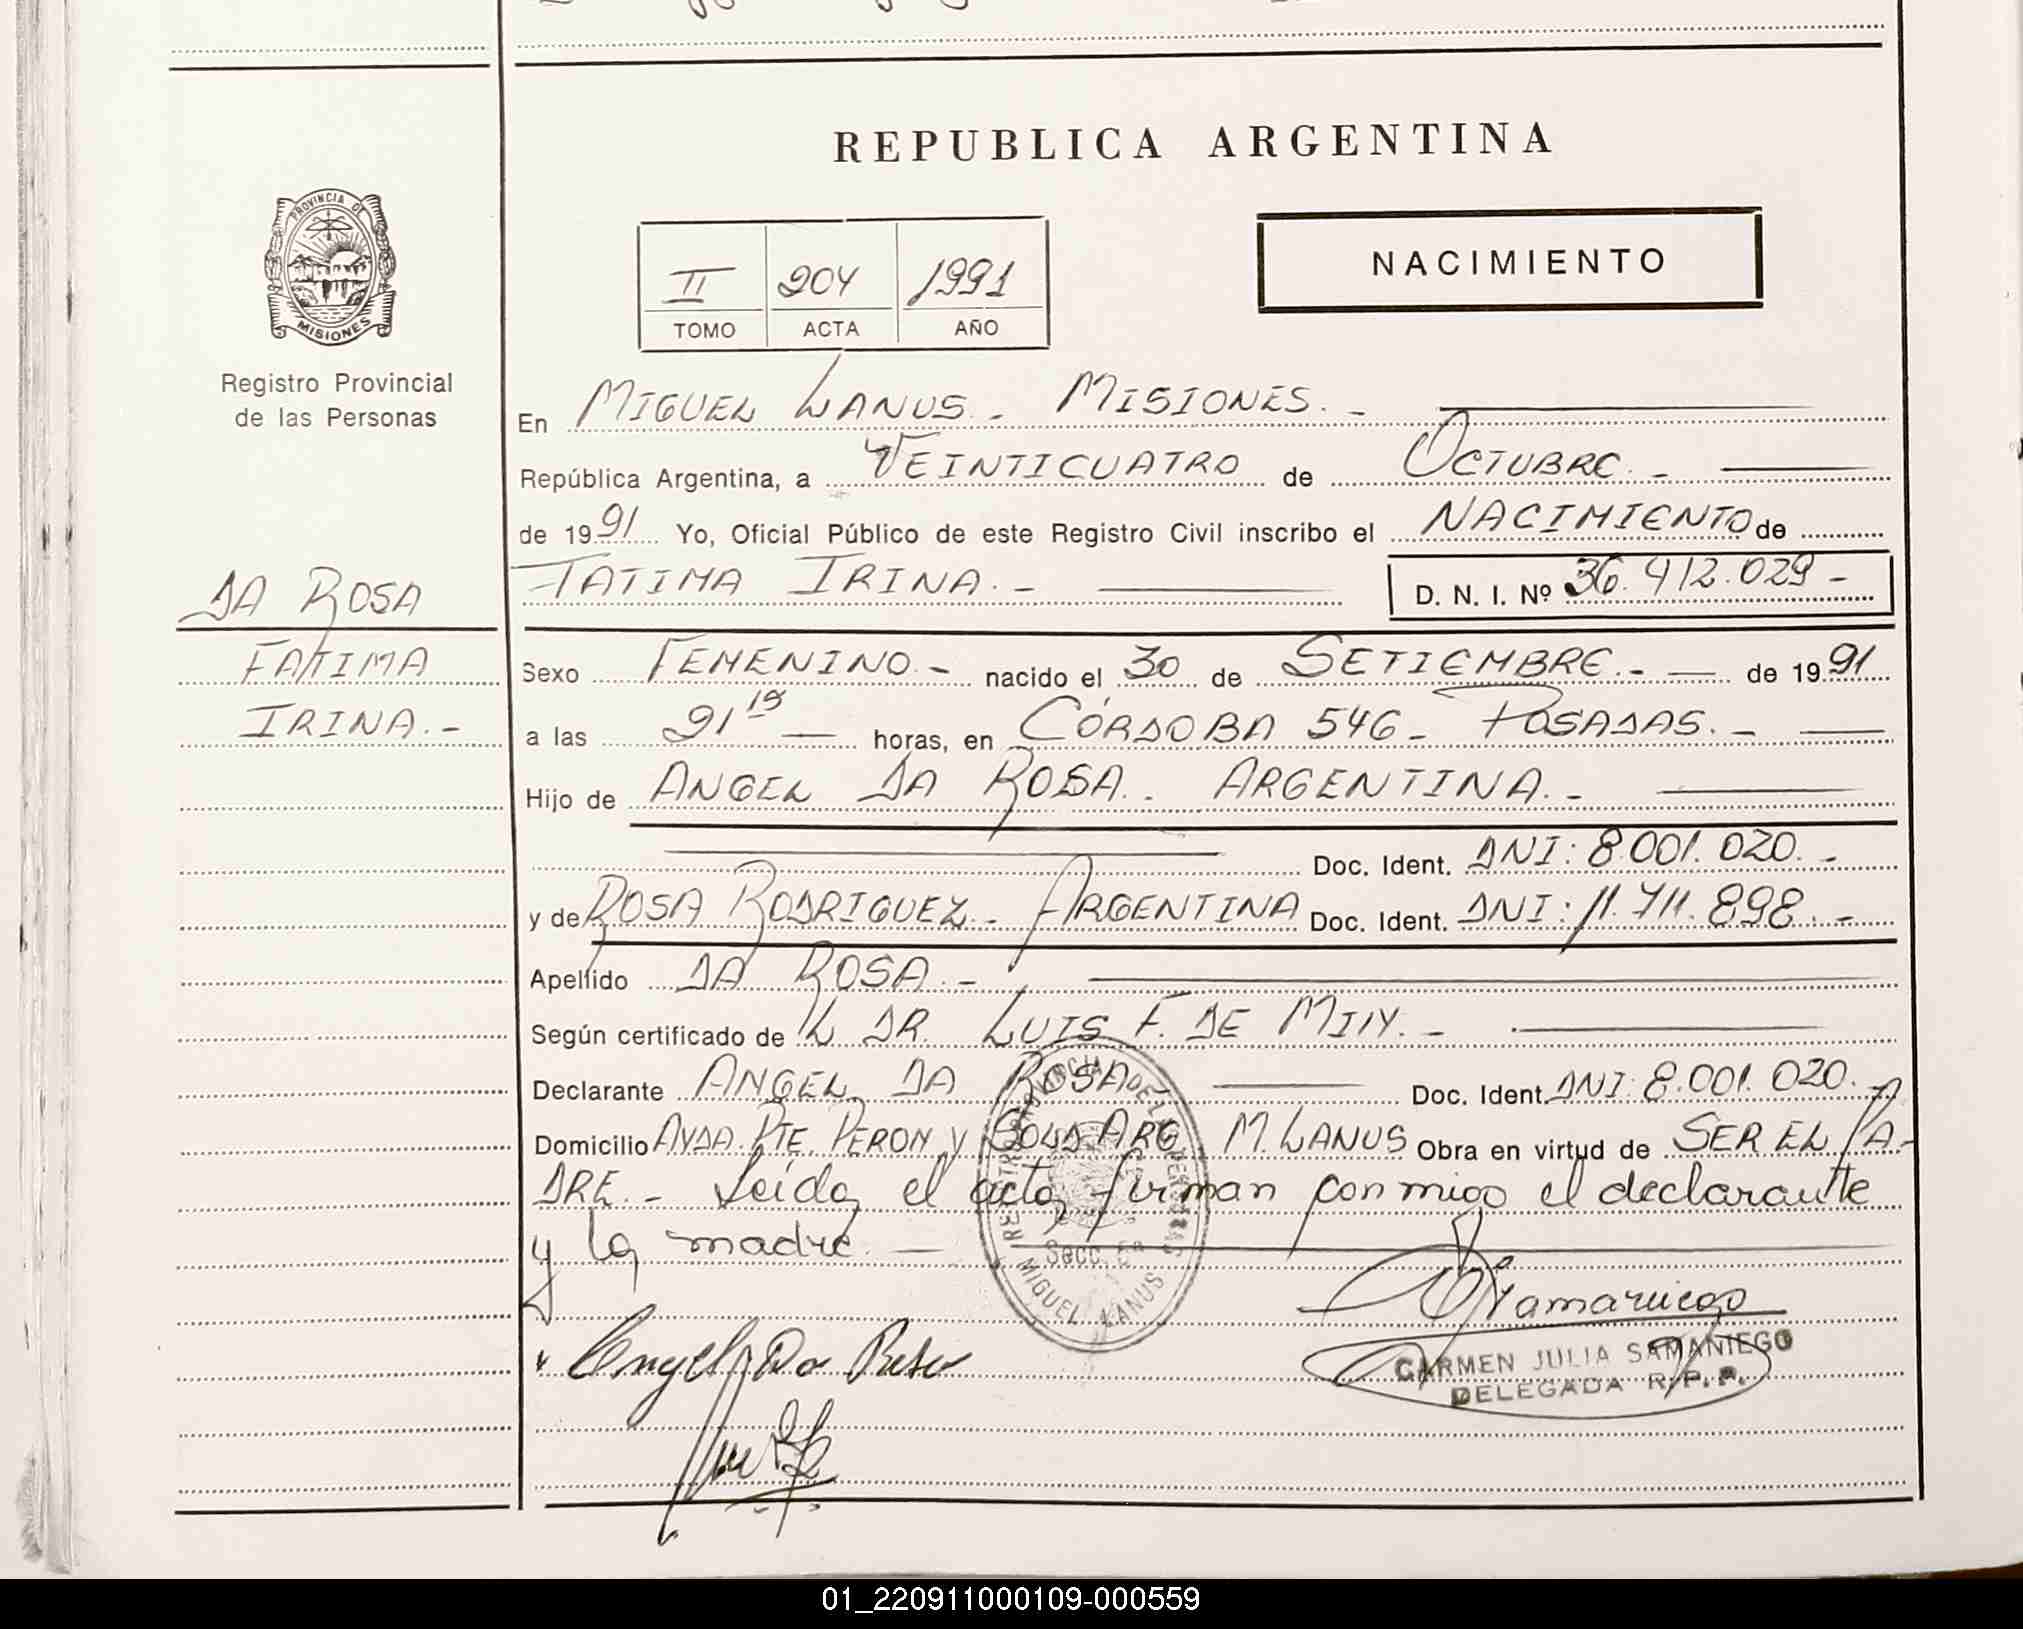 REPUBLICA ARGENTINA
PROVINCIA DE
MISIONES
Registro Provincial
de las Personas
II 204 1991
TOMO ACTA AÑO
NACIMIENTO
En MIGUEL LANUS.- MISIONES.-
República Argentina, a VEINTICUATRO de OCTUBRE.-
de 1991 Yo, Oficial Público de este Registro Civil inscribo el NACIMIENTO de
DA ROSA
FATIMA
IRINA.-
FATIMA IRINA.- D. N. I. Nº 36.412.029-
Sexo FEMENINO.- nacido el 30 de SETIEMBRE.- de 1991
a las 21 15 horas, en CÓRDOBA 546- POSADAS.-
Hijo de ANGEL DA ROSA. ARGENTINA.-
Doc. Ident. DNI: 8.001.020.-
y de ROSA RODRIGUEZ- ARGENTINA Doc. Ident. DNI: 11.711.898.-
Apellido DA ROSA.-
Según certificado de L DR. LUIS F. DE
Declarante ANGEL DA ROSA- Doc. Ident. DNI: 8.001.020.-
Domicilio AVDA. PTE. PERON Y ARG M. LANUS Obra en virtud de SER EL PA-
DRE.- Leída el acta, firman conmigo el declarante
y la madre.
REGISTRO PROVINCIAL DE LAS PERSONAS
Secc. 5ª
MIGUEL LANUS
Angel Da Rosa
CARMEN JULIA SAMANIEGO
DELEGADA R.P.P.
01_220911000109-000559